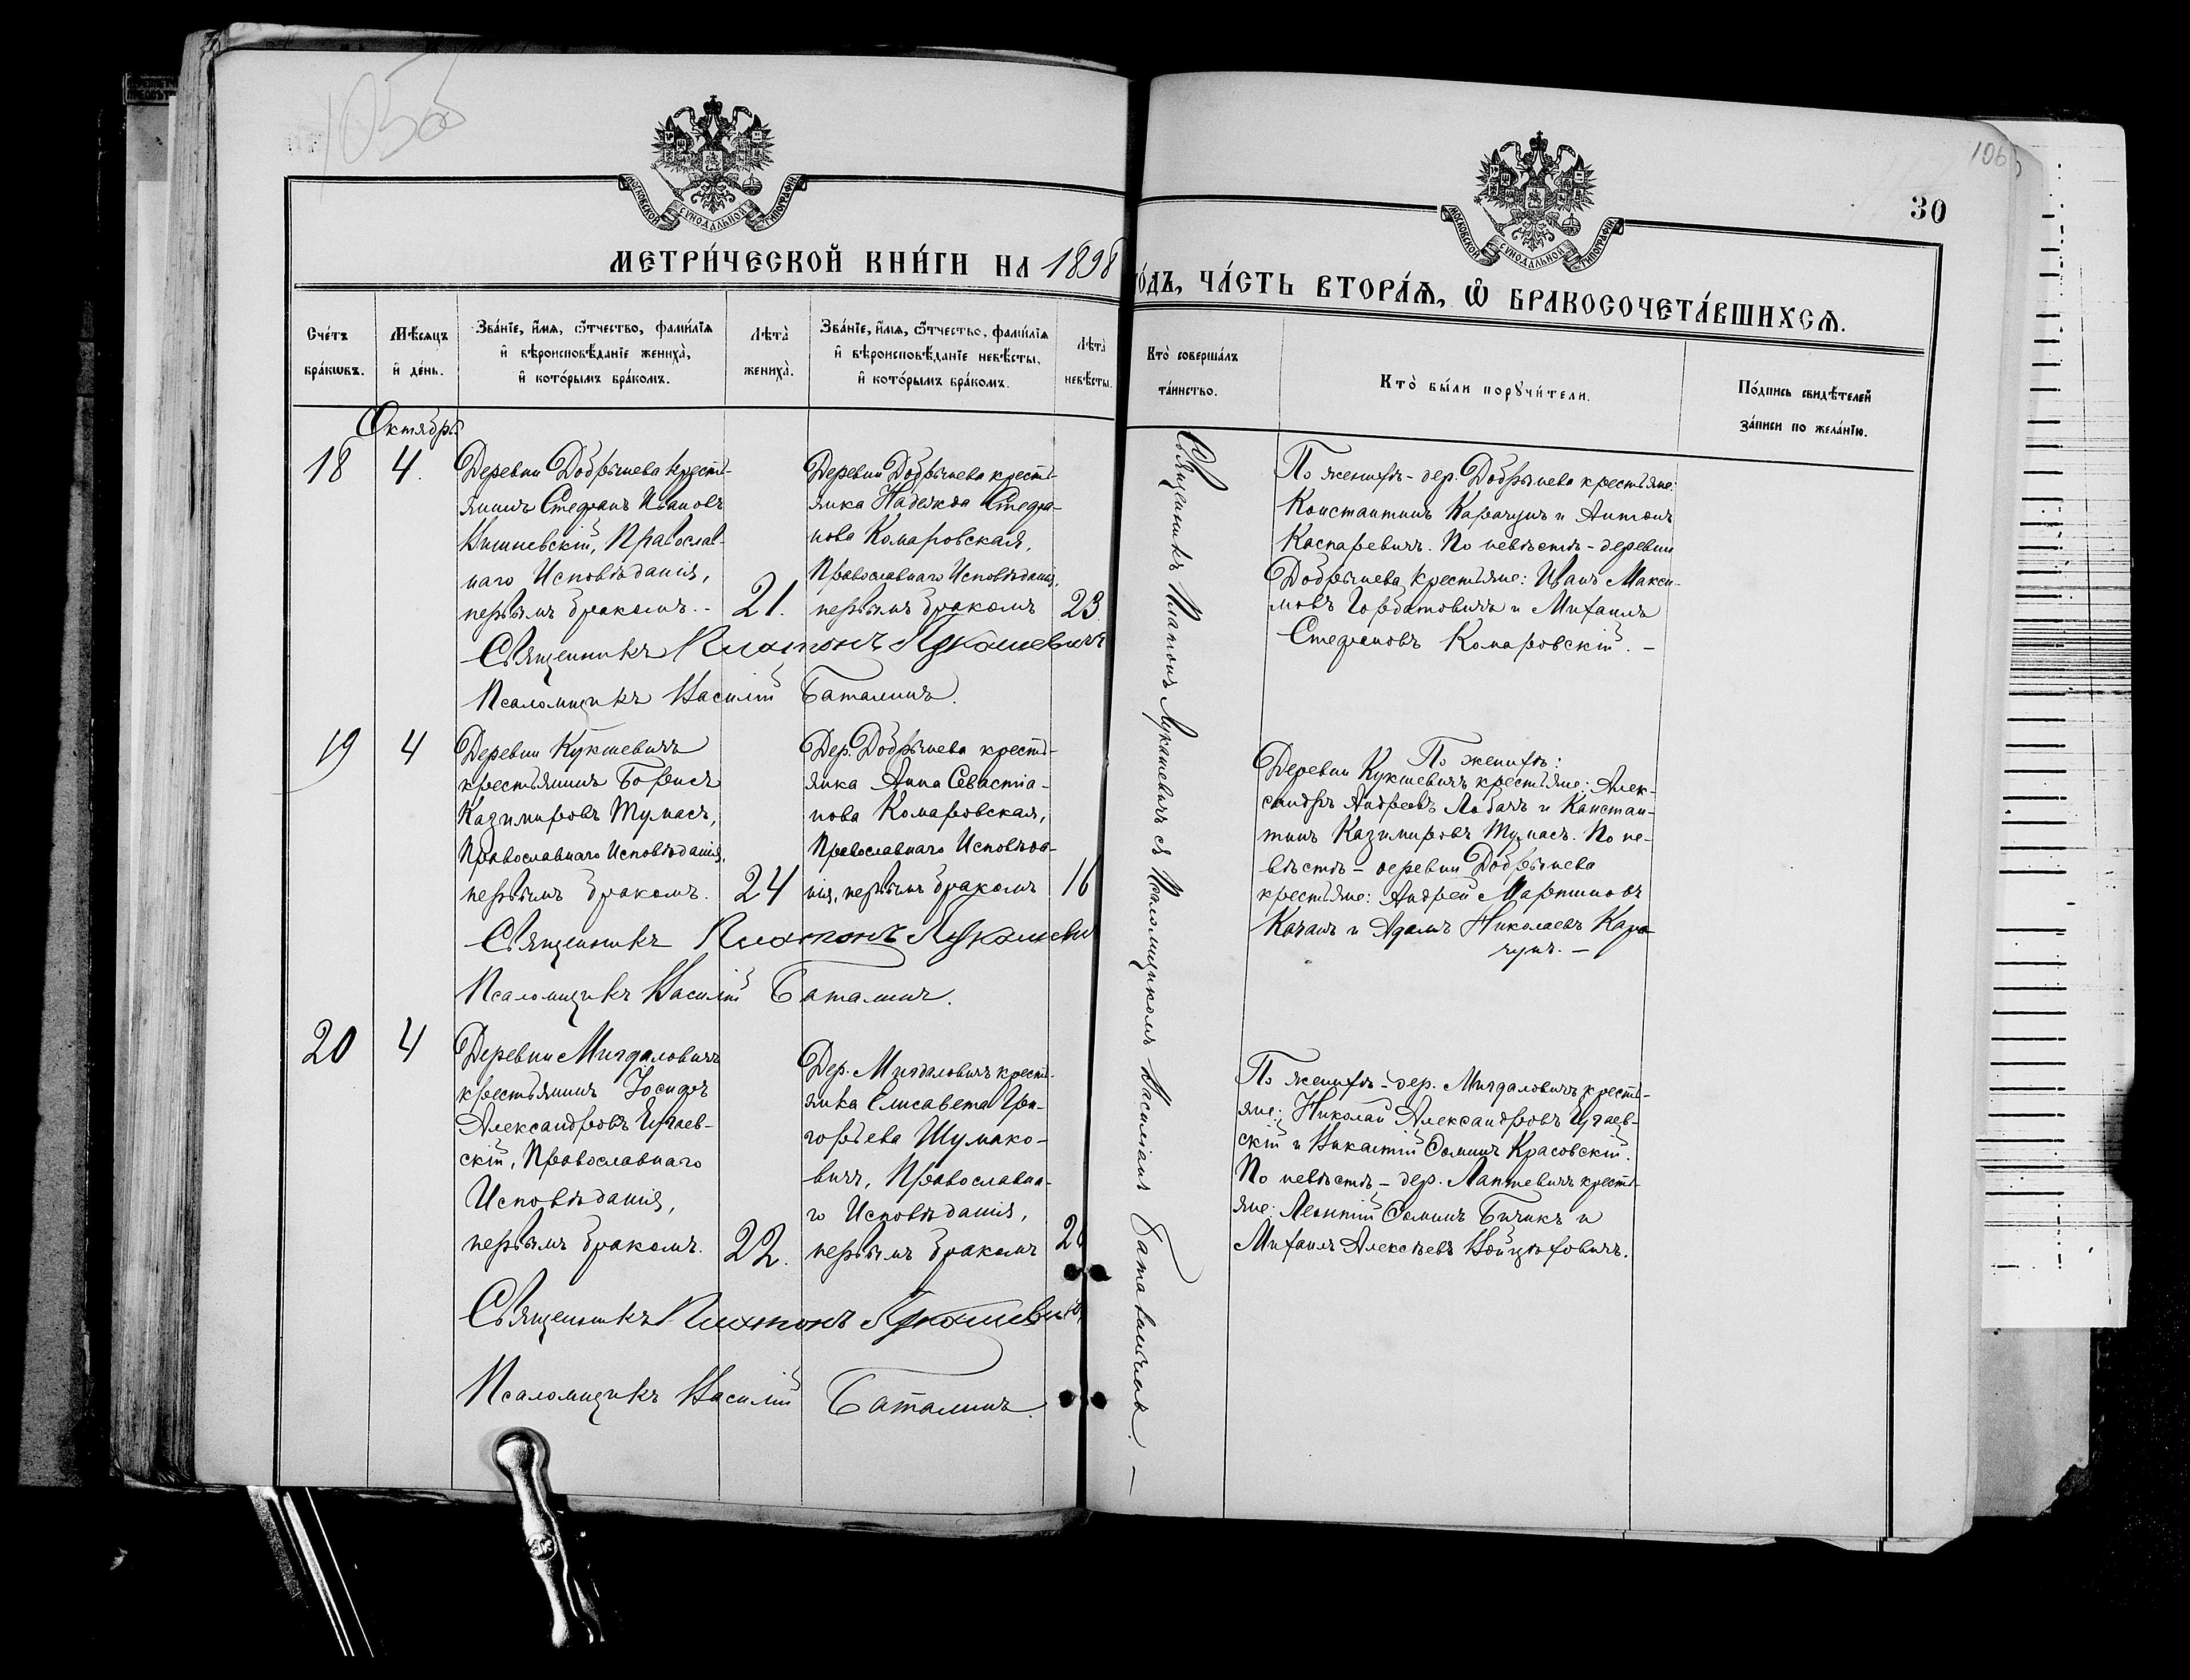 105об
106
30
МОСКОВСКОЙ СУНОДАЛЬНОЙ ТИПОГРАФІИ
МОСКОВСКОЙ СУНОДАЛЬНОЙ ТИПОГРАФІИ
МЕТРИ́ЧЕСКОЙ КНИ́ГИ НА 1898
го́дъ, ЧА́СТЬ ВТОРА́Я, Ѽ БРАКОСОЧЕТА́ВШИХСЯ.
Сче́тъ
бра́кѡвъ.
Мѣ́сяцъ
и҆ де́нь.
Зва́нїе, и҆́мя, ѻ҆́тчество, фами́лїя
и҆ вѣроисповѣ́данїе жениха̀,
и҆ кото́рымъ бра́комъ.
Лѣта̀
жениха̀.
Зва́нїе, и҆́мя, ѻ҆́тчество, фами́лїя
и҆ вѣроисповѣ́данїе невѣ́сты,
и҆ кото́рымъ бра́комъ.
Лѣта̀
невѣ́сты.
Кто̀ соверша́лъ
та́инство.
Кто̀ бы́ли порꙋчи́тели.
По́дпись свидѣ́телей
за́писи по жела́нїю.
Октябрь
18
4.
Деревни Добрынева кресть-
янинъ Стефанъ Ивановъ
Вишневскій, Православ-
наго Исповѣданія,
первымъ бракомъ. -
21.
Деревни Добрынева кресть-
янка Надежда Стефа-
нова Комаровская,
Православнаго Исповѣданія,
первымъ бракомъ
23
По женихѣ - дер. Добрынева крестьяне:
Константинъ Карачунъ и Антонъ
Каспаревичъ. По невѣстѣ - деревни
Добрынева крестьяне: Иванъ Макси-
мовъ Горбатовичъ и Михаилъ
Стефановъ Комаровскій. -
Священникъ Платонъ Лукашевичъ
Псаломщикъ Василій Баталинъ.
Священникъ Платонъ Лукашевичъ съ Псаломщикомъ Василіемъ
19
4
Деревни Кукшевичъ
крестьянинъ Борисъ
Казимировъ Тумасъ,
Православнаго Исповѣданія,
первымъ бракомъ.
24
Дер. Добрынева кресть-
янка Анна Севастіа-
нова Комаровская,
Православнаго Исповѣда-
нія, первымъ бракомъ
16
По женихѣ:
Деревни Кукшевичъ крестьяне: Алек-
сандръ Андреевъ Лобачъ и Констан-
тинъ Казимировъ Тумасъ. По не-
вѣстѣ - деревни Добрынева
крестьяне: Андрей Мартиновъ
Качанъ и Адамъ Николаевъ Кара-
чунъ. -
Священникъ Платонъ Лукашевич
Псаломщикъ Василій Баталинъ.
20
4
Деревни Мигдаловичъ
крестьянинъ Іосифъ
Александровъ Цугаев-
скій, Православнаго
Исповѣданія,
первымъ бракомъ.
22.
Дер. Мигдаловичъ кресть-
янка Елисавета Гри-
горьева Шумако-
вичъ, Православна-
го Исповѣданія,
первымъ бракомъ
По женихѣ - дер. Мигдаловичъ кресть-
яне: Николай Александровъ Цугаев-
скій и Викентій Ѳоминъ Красовскій.
По невѣстѣ - дер. Лаптевичъ кресть-
яне: Леонтій Ѳоминъ Бичикъ и
Михаилъ Алексѣевъ Войцѣховичъ.
Священникъ Платонъ Лукашевичъ
Псаломщикъ Василій Баталинъ.